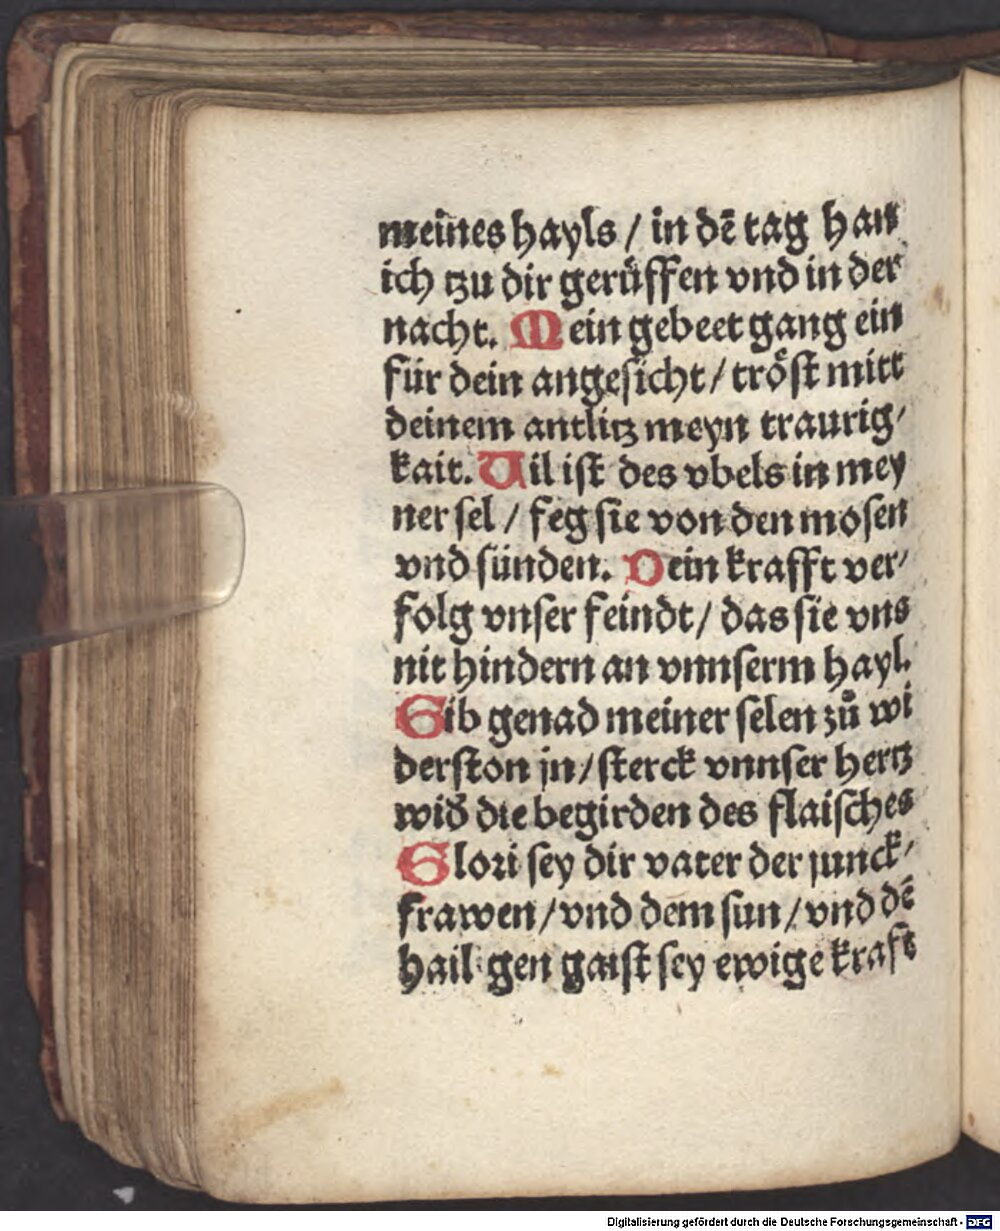 meines hayls / in dē tag han
ich tzu dir gerüffen vnd in der
nacht. Mein gebeet gang ein
für dein angesicht / tröst mitt
deinem antlitz meyn traurig⸗
kait. Uil ist des vbels in mey
ner sel / feg sie von den mosen
vnd sünden. Dein krafft ver⸗
folg vnser feindt / das sie vns
nit hindern an vnnserm hayl.
Gib genad meiner selen zů wi
derston jn / sterck vnnser hertz
wid̄ die begirden des flaisches
Glori sey dir vater der junck⸗
frawen / vnd dem sun / vnd dē
hailigen gaist sey ewige kraft
Digitalisierung gefördert durch die Deutsche Forschungsgemeinschaft - DFG